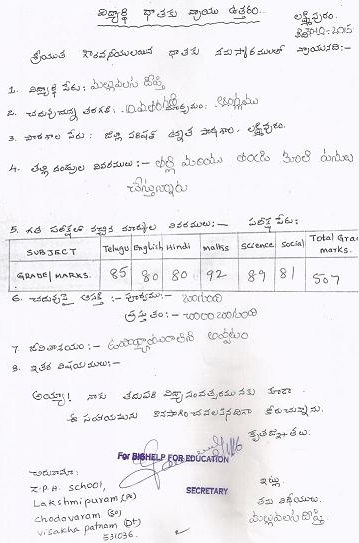 విద్యార్థి దాతకు వ్రాయు ఉత్తరం..
లక్ష్మీపురం.
శ్రీయుత గౌరవనీయులయిన దాతకు నమస్కారములతో వ్రాయునది:-
1. విద్యార్థి పేరు: మల్లవలస
2. చదువుచున్న తరగతి: మాధ్యమం: ఆంగ్లము
3. పాఠశాల పేరు: జిల్లా పరిషత్ ఉన్నత పాఠశాల, లక్ష్మీపురం.
4. తల్లి దండ్రుల వివరములు:- తల్లి మరియు తండ్రి కూలి పనులు
చేస్తున్నారు
5. గత పరీక్షలో వచ్చిన మార్కుల వివరములు:- పరీక్ష పేరు:
SUBJECT Telugu English Hindi maths science social Total Grad marks.
GRADE/MARKS. 85 80 80 92 89 81 507
6. చదువుపై ఆసక్తి :- పూర్వము:- బాగుంది
ప్రస్తుతం:- చాలా బాగుంది
7. జీవితాశయం:- ఉపాధ్యాయురాలిని అవ్వటం
8. ఇతర విషయములు:-
అయ్యా! నాకు తదుపరి విద్యా సంవత్సరమునకు కూడా
ఈ సహాయమును కొనసాగించవలసినదిగా కోరుచున్నాను.
కృతజ్ఞతలు.
For BIGHELP FOR EDUCATION
SECRETARY
చిరునామా:
Z.P.H. School,
Lakshmipuram (po)
chodavaram (so)
visakha patnam (Dt)
531036.
ఇట్లు
తమ విధేయులు
మల్లవలస